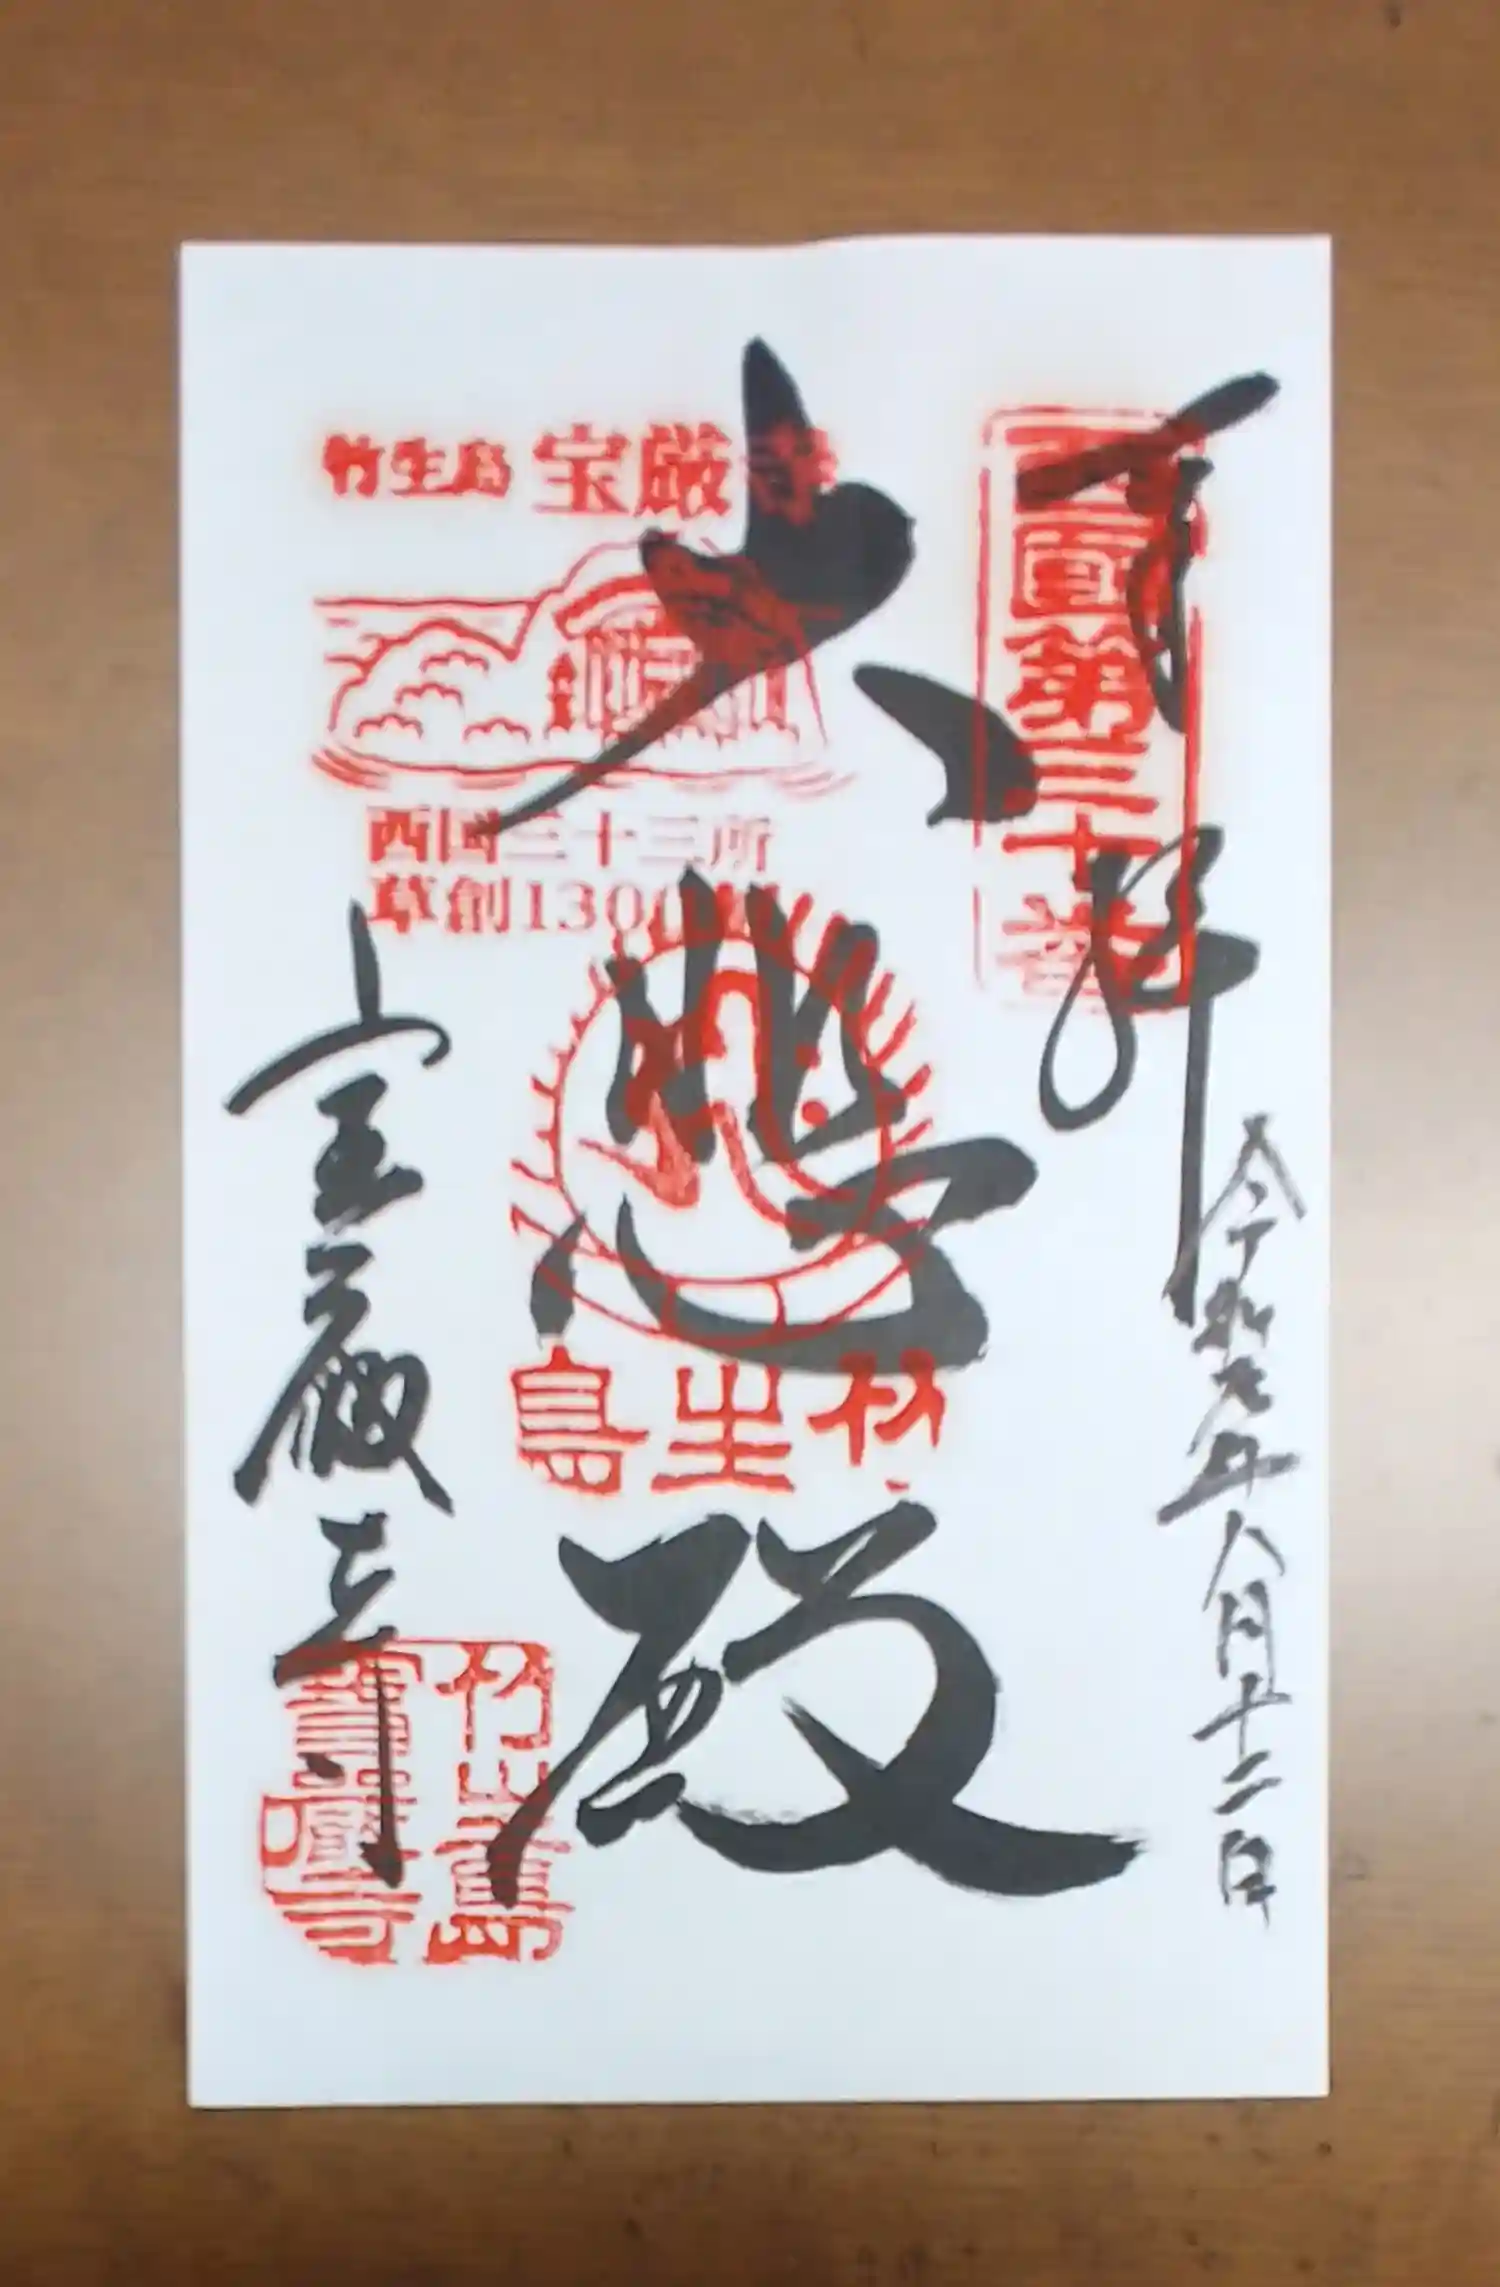 奉拝
令和元年八月十二日
西国第三十番
大悲殿
竹生島
竹生島 宝厳寺
西国三十三所
草創1300年
宝厳寺
竹生島
寶嚴寺